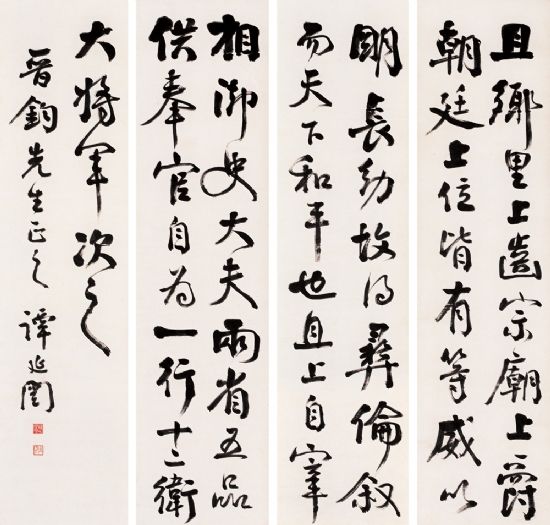 且鄉里上齒宗廟上爵
朝廷上位皆有等威以
明長幼故得彝倫叙
而天下和平也且上自宰
相御史大夫兩省五品
供奉官自為一行十二衛
大將軍次之
晉鈞先生正之 譚延闓